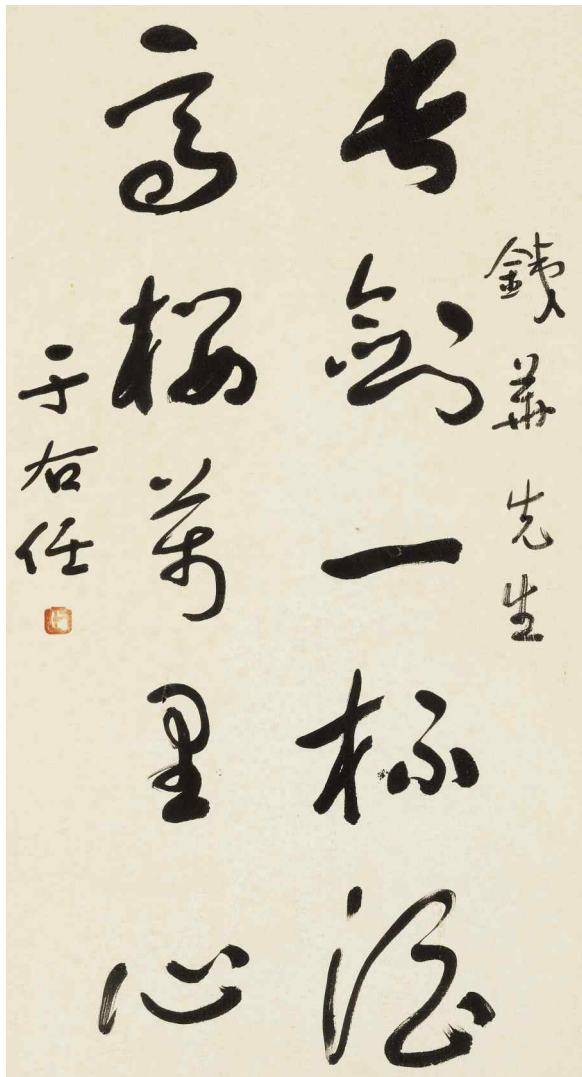 銕華先生
長劍一杯酒
高樓萬里心
于右任